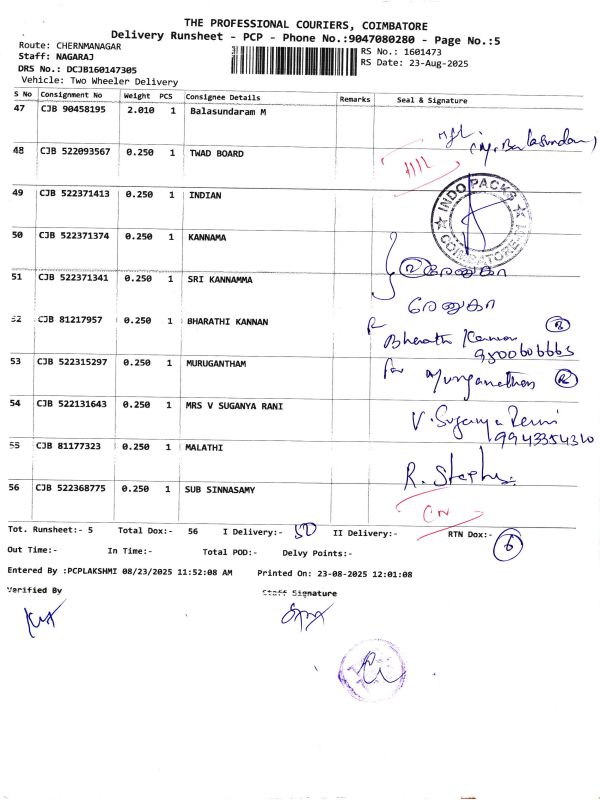 THE PROFESSIONAL COURIERS, COIMBATORE
Delivery Runsheet - PCP - Phone No.:9047080280 - Page No.:5
Route: CHERNMANAGAR
RS No.: 1601473
Staff: NAGARAJ
RS Date: 23-Aug-2025
DRS No.: DCJB160147305
Vehicle: Two Wheeler Delivery
S No Consignment No Weight PCS Consignee Details Remarks Seal & Signature
47 CJB 90458195 2.010 1 Balasundaram M
48 CJB 522093567 0.250 1 TWAD BOARD
49 CJB 522371413 0.250 1 INDIAN
INDO PACKS
COIMBATORE
50 CJB 522371374 0.250 1 KANNAMA
ரேணுகா
51 CJB 522371341 0.250 1 SRI KANNAMMA
ரேணுகா
52 CJB 81217957 0.250 1 BHARATHI KANNAN
Bharath Kannan
53 CJB 522315297 0.250 1 MURUGANTHAM
for
54 CJB 522131643 0.250 1 MRS V SUGANYA RANI
V. Suganya Rani
9943354310
55 CJB 81177323 0.250 1 MALATHI
R. Stephe
56 CJB 522368775 0.250 1 SUB SINNASAMY
CN
Tot. Runsheet:- 5 Total Dox:- 56 I Delivery:- 50 II Delivery:- RTN Dox:- 6
Out Time:- In Time:- Total POD:- Delvy Points:-
Entered By :PCPLAKSHMI 08/23/2025 11:52:08 AM Printed On: 23-08-2025 12:01:08
Verified By Staff Signature